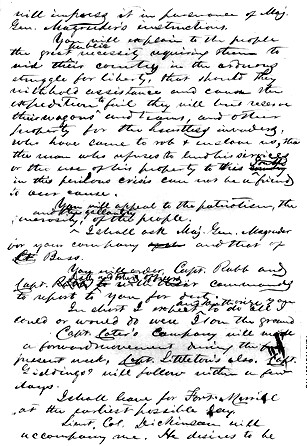 will impress it in pursuance of Maj.
Gen. Magruder's instructions.
You will explain to the people
the great public necessity requiring them to
aid their country in the arduous
struggle for liberty, that should they
withhold assistance and cause the
expedition to fail they will but reserve
their wagons and teams, and other
property for the heartless invaders,
who have come to rob & enslave us, that
the man who refuses to lend his services
or the use of his property to this
in this perilous crisis can not be a friend
to our cause.
You will appeal to the patriotism, the
and the gallantry
of the people.
I shall ask Maj. Gen. Magruder
for your company and that of
Bass.
You will order Capt. Rabb and
Capt. with their commands
to report to you for duty.
In short I expect to do all I
could or would do were I on the ground
Capt. Company will make
a forward movement during the
present week, Capt. Littleton's also. Capt.
Giddings' will follow within a few
days.
I shall leave for Fort Merrill
at the earliest possible day.
Lieut. Col. Dickinson will
accompany me. He desires to be